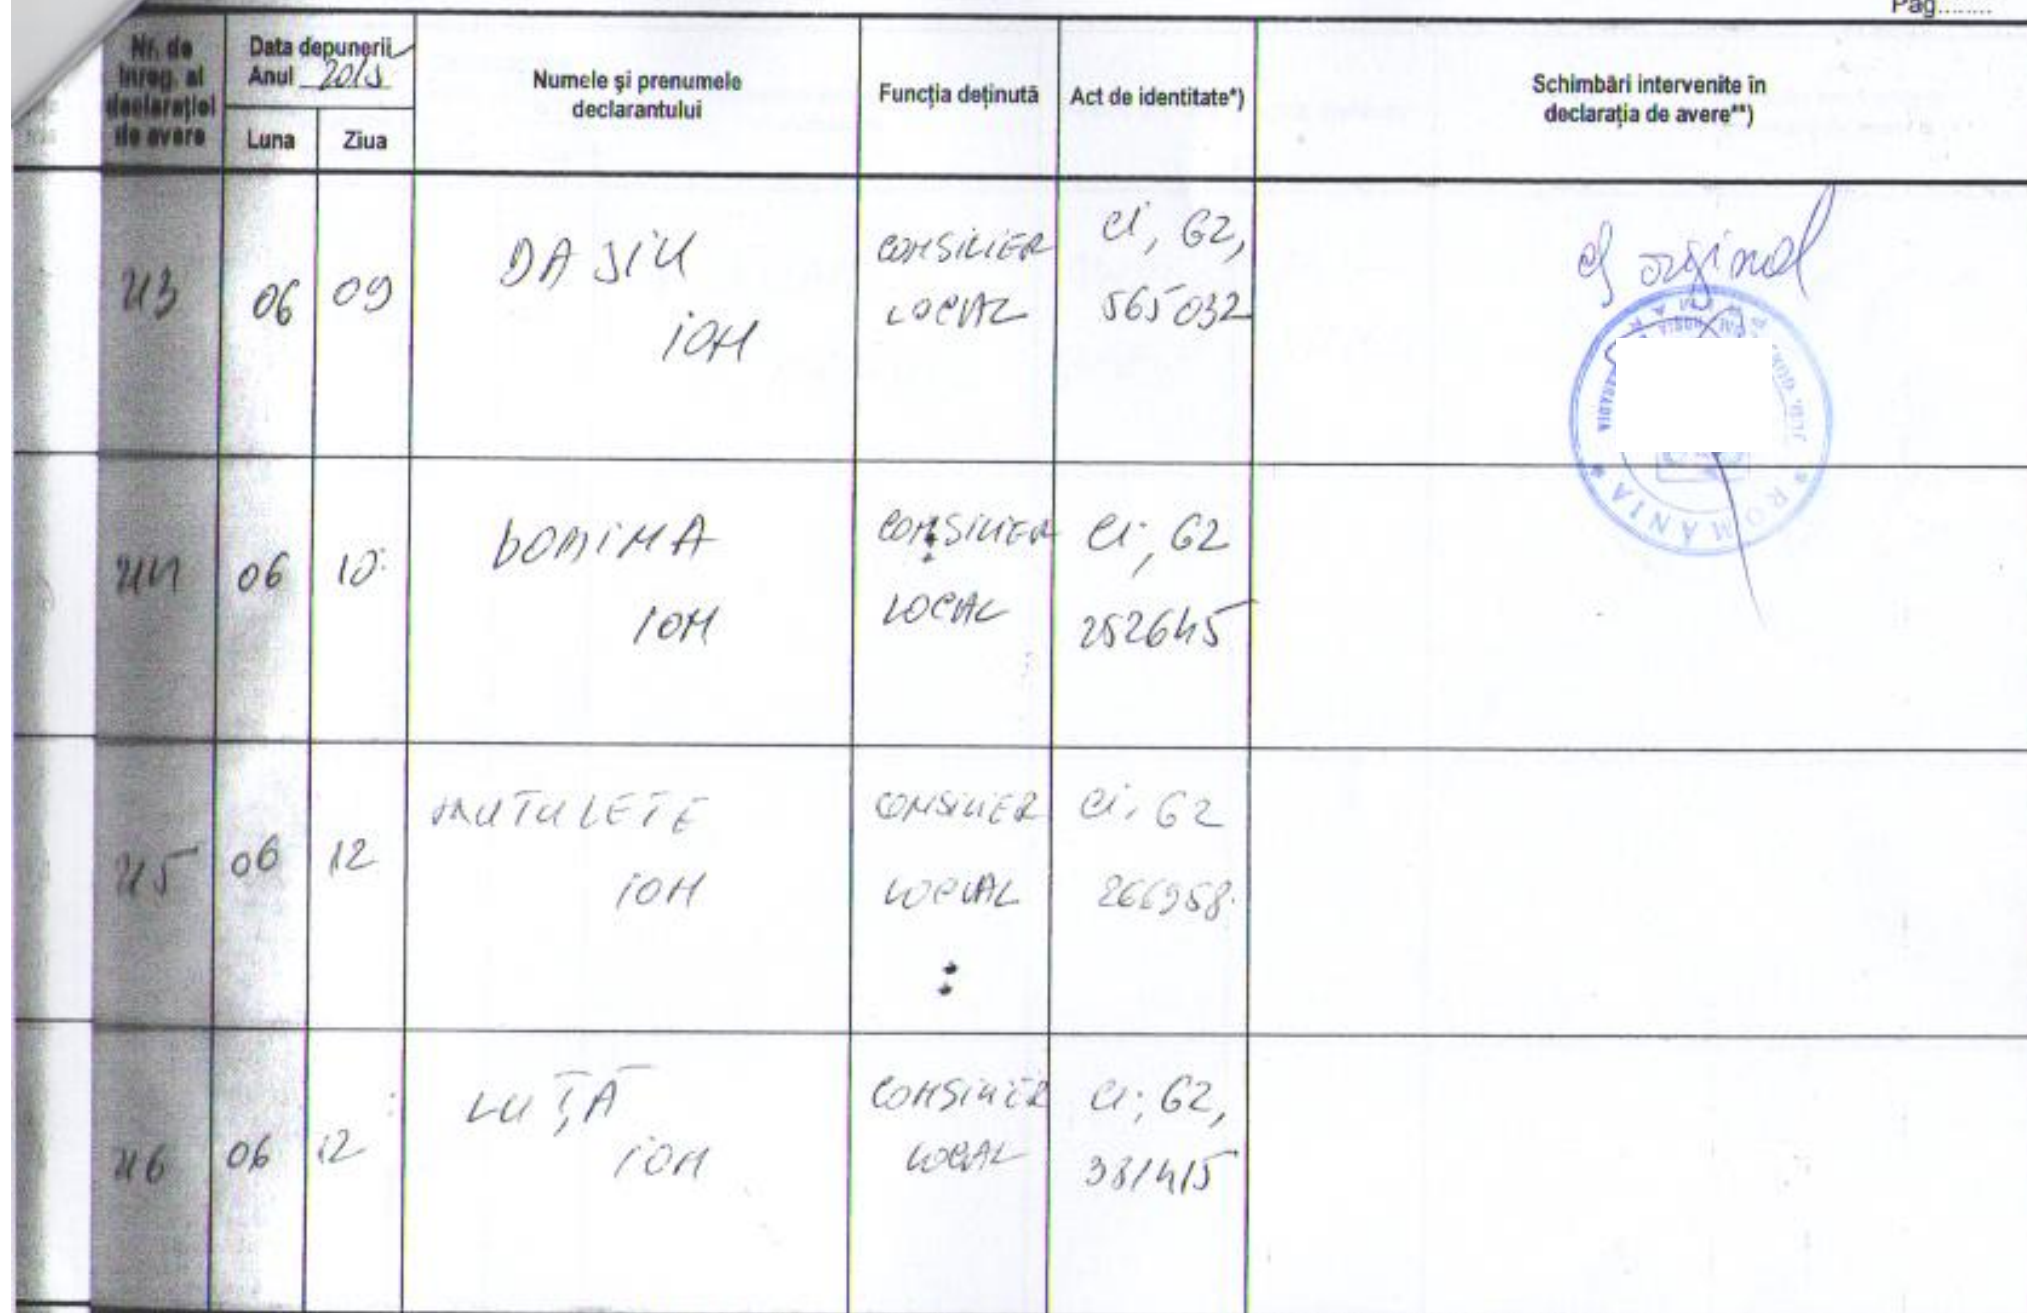 Pag........
Nr. de
înreg. al
declarației
de avere
Data depunerii
Anul 2015
Luna
Ziua
Numele și prenumele
declarantului
Funcția deținută
Act de identitate*)
Schimbări intervenite în
declarația de avere**)
43
06
09
DAJIU
ION
CONSILIER
LOCAL
CI, GZ,
565032
cf original
ROMÂNIA
44
06
10
DOMINA
ION
CONSILIER
LOCAL
CI, GZ
252645
45
06
12
MUTULETE
ION
CONSILIER
LOCAL
CI, GZ
266958
46
06
12
LUȚĂ
ION
CONSILIER
LOCAL
CI, GZ,
381415